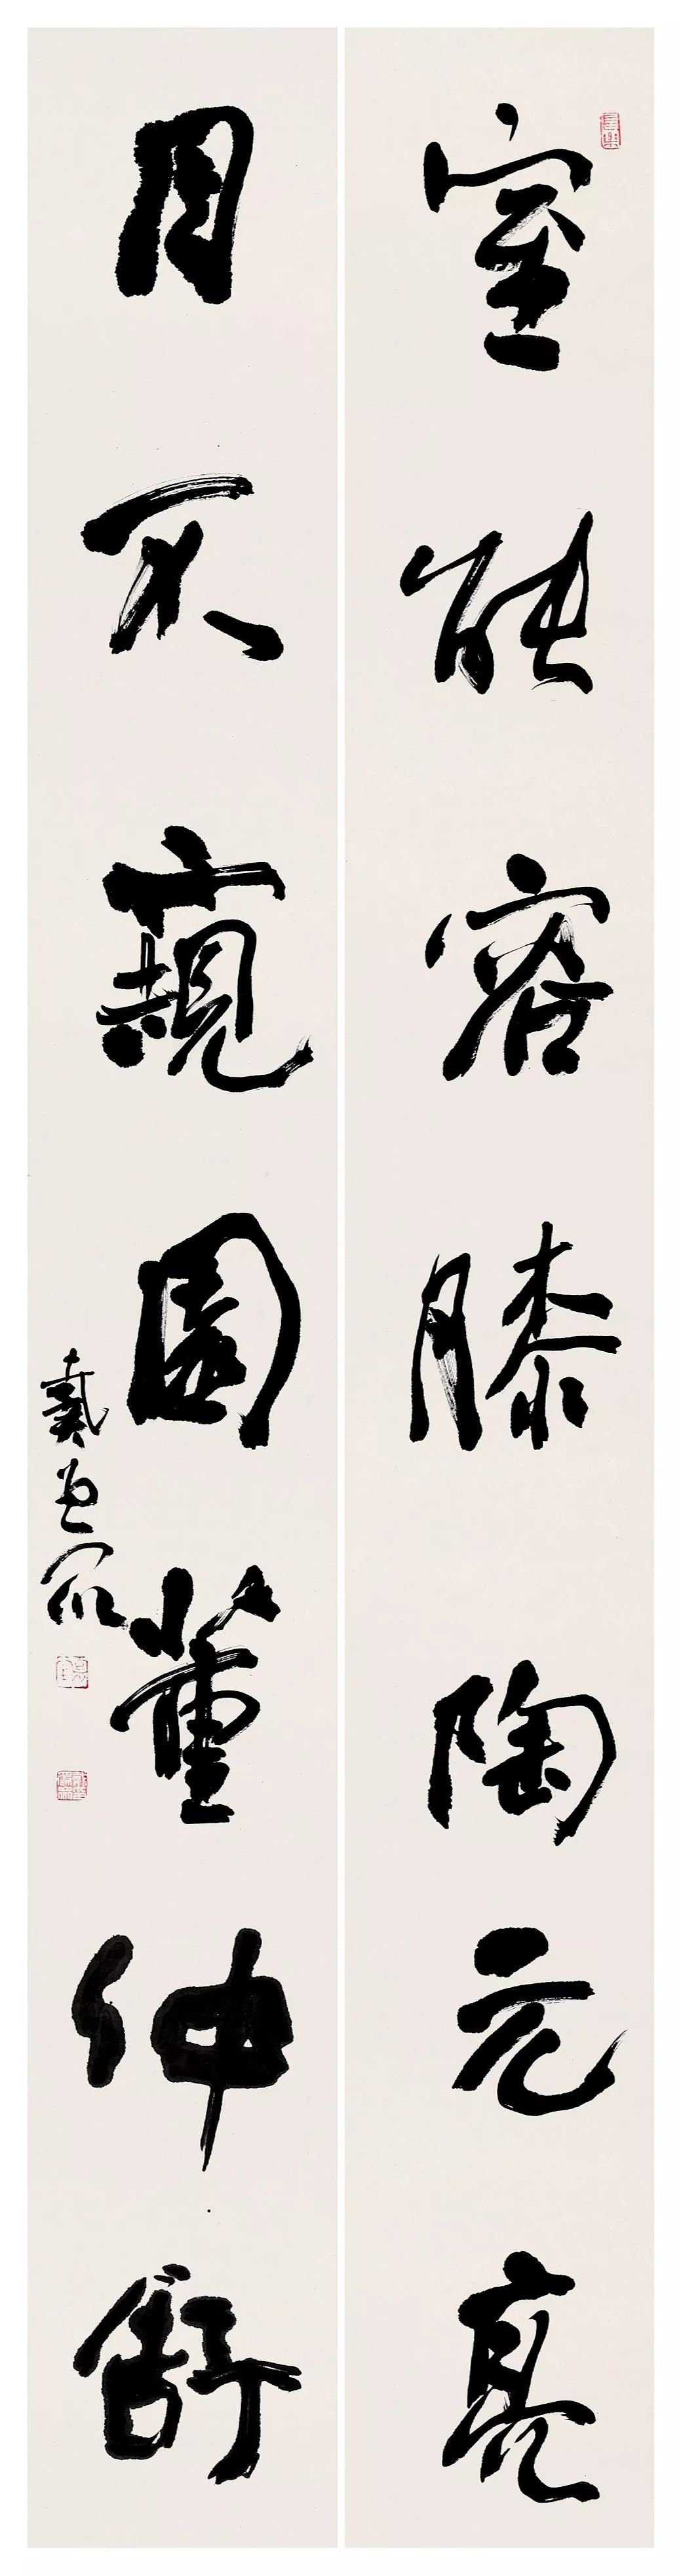 室能容膝陶元亮
目不窺園董仲舒